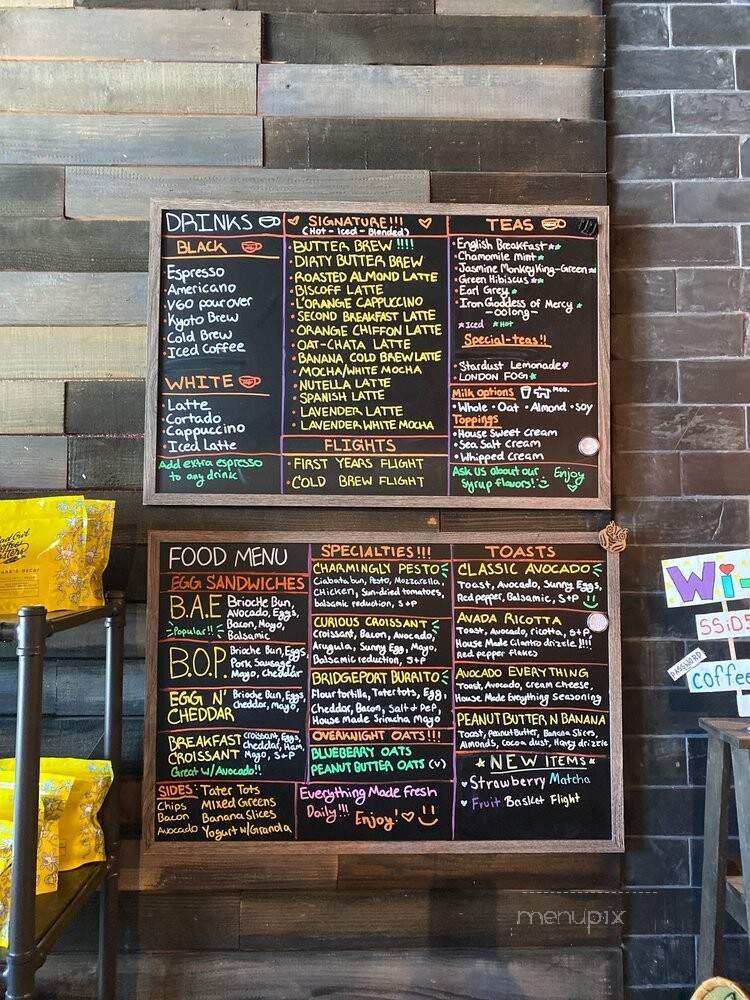 DRINKS
BLACK
Espresso
Americano
V60 pour over
Kyoto Brew
Cold Brew
Iced Coffee
WHITE
Latte
Cortado
Cappuccino
Iced Latte
Add extra espresso
to any drink
SIGNATURE!!!
(Hot - Iced - Blended)
BUTTER BREW !!!!
DIRTY BUTTER BREW
ROASTED ALMOND LATTE
BISCOFF LATTE
L'ORANGE CAPPUCCINO
SECOND BREAKFAST LATTE
ORANGE CHIFFON LATTE
OAT-CHATA LATTE
BANANA COLD BREW LATTE
MOCHA/WHITE MOCHA
NUTELLA LATTE
SPANISH LATTE
LAVENDER LATTE
LAVENDER WHITE MOCHA
FLIGHTS
FIRST YEARS FLIGHT
COLD BREW FLIGHT
TEAS
English Breakfast
Chamomile Mint
Jasmine Monkey King-Green
Green Hibiscus
Earl Grey
Iron Goddess of Mercy
-oolong-
Iced Hot
Special-teas!!
Stardust Lemonade
LONDON FOG
Milk options Moo.
Whole • Oat • Almond • Soy
Toppings
House Sweet Cream
Sea Salt Cream
Whipped Cream
Ask us about our
Syrup flavors!
Enjoy
FOOD MENU
EGG SANDWICHES
B.A.E Brioche Bun,
Avocado, Eggs,
Popular!! Bacon, Mayo,
Balsamic
B.O.P. Brioche Bun, Eggs,
Pork Sausage,
Mayo, Cheddar
EGG N' Brioche Bun, Eggs,
CHEDDAR Cheddar, Mayo,
BREAKFAST Croissant, Eggs,
CROISSANT Cheddar, Ham,
Mayo, S+P
Great w/Avocado!!
SIDES: Tater Tots
Chips Mixed Greens
Bacon Banana Slices
Avocado Yogurt w/Granola
SPECIALTIES!!!
CHARMINGLY PESTO
Ciabatta bun, Pesto, Mozzarella,
Chicken, Sun-dried tomatoes,
balsamic reduction, S+P
CURIOUS CROISSANT
Croissant, Bacon, Avocado,
Arugula, Sunny Egg, Mayo,
Balsamic reduction, S+P
BRIDGEPORT BURRITO
Flour tortilla, Tater tots, Egg,
Cheddar, Bacon, Salt & Pep,
House Made Sriracha Mayo
OVERNIGHT OATS!!!
BLUEBERRY OATS
PEANUT BUTTER OATS (V)
Everything Made Fresh
Daily!!! Enjoy!
TOASTS
CLASSIC AVOCADO
Toast, Avocado, Sunny Eggs,
Red pepper, Balsamic, S+P
AVADA RICOTTA
Toast, Avocado, ricotta, S+P
House Made Cilantro drizzle!!!!
Red pepper flakes
AVOCADO EVERYTHING
Toast, Avocado, cream cheese,
House Made Everything Seasoning
PEANUT BUTTER N BANANA
Toast, Peanut Butter, Banana Slices,
Almonds, Cocoa dust, Honey drizzle
NEW ITEMS
Strawberry Matcha
Fruit Basket Flight
Wi-
SSiDS
PASSWORD
coffee
menupix